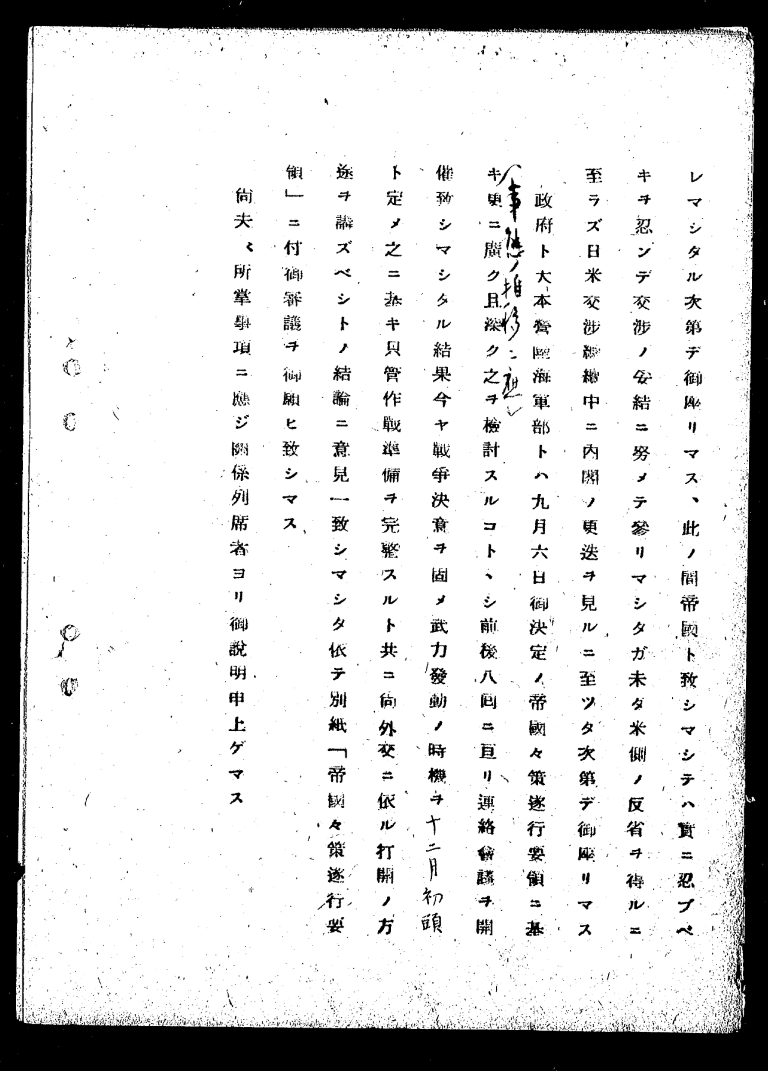 レマシタル次第デ御座リマス、此ノ間帝國ト致シマシテハ實ニ忍ブベ
キヲ忍ンデ交渉ノ妥結ニ努メテ參リマシタガ未ダ米側ノ反省ヲ得ルニ
至ラズ日米交渉繼續中ニ內閣ノ更迭ヲ見ルニ至ツタ次第デ御座リマス
政府ト大本營陸海軍部トハ九月六日御決定ノ帝國々策遂行要領ニ基
事態ノ推移ニ
キ更ニ廣ク且深ク之ヲ檢討スルコトヽシ前後八回ニ亘リ連絡會議ヲ開
催致シマシタル結果今ヤ戰爭決意ヲ固メ武力發動ノ時機ヲ十二月初頭
ト定メ之ニ基キ只管作戰準備ヲ完整スルト共ニ尙外交ニ依ル打開ノ方
途ヲ講ズベシトノ結論ニ意見一致シマシタ依テ別紙「帝國々策遂行要
領」ニ付御審議ヲ御願ヒ致シマス
尙夫々所掌事項ニ應ジ關係列席者ヨリ御說明申上ゲマス